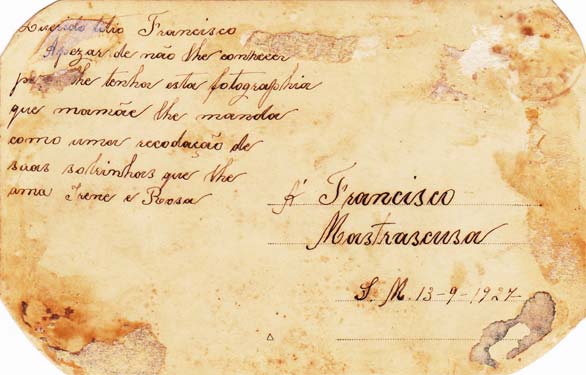 Querido titio Francisco
Apezar de não lhe conhecer
lhe tenha esta fotographia
que mamãe lhe manda
como uma recodação de
suas sobrinhas que lhe
ama Irene e Rosa
A' Francisco
Mastrascusa
S. M. 13-9-1927